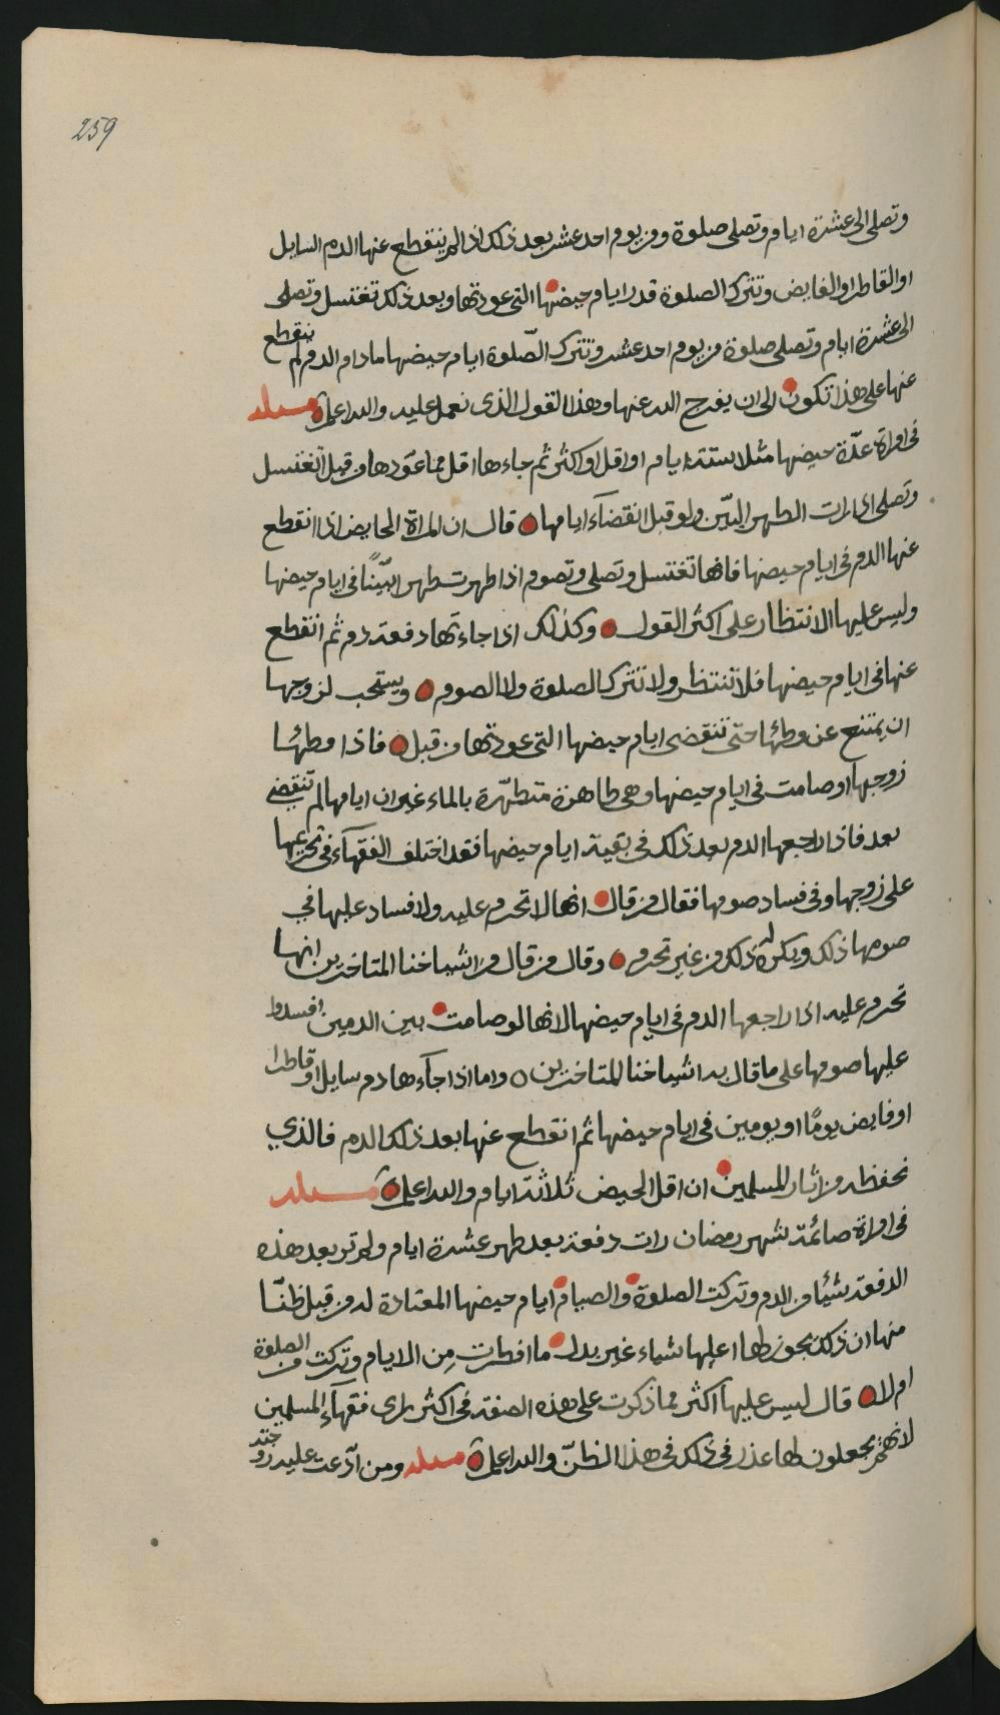 259
وتصلى الى عشرة ايام وتصلى صلوة من يوم احد عشر بعد ذلك اذا لم ينقطع عنها الدم السايل
او القاطر او الفايض وتترك الصلوة قدر ايام حيضها التى عودتها وبعد ذلك تغتسل وتصلى
الى عشرة ايام وتصلى صلوة من يوم احد عشر وتترك الصّلوة ايام حيضها ما دام الدم لم ينقطع
عنها على هذا تكون الى ان يفرج الله عنها وهذا القول الذى نعمل عليه والله اعلم مسئله
فى امراة عدّة حيضها مثلا ستة ايام او اقل او اكثر ثم جاءها اقل مما عوّدها من قبل اتغتسل
وتصلى اذا رات الطهر البيّن ولو قبل انقضآء ايامها قال ان المراة الحايض اذا انقطع
عنها الدم فى ايام حيضها فانها تغتسل وتصلى وتصوم اذا طهرت طهرا بيّنًا فى ايام حيضها
وليس عليها الانتظار على اكثر القول وكذلك اذا جاءتها دفعة دم ثم انقطع
عنها فى ايام حيضها فلا تنتظر ولا تترك الصلوة ولا الصوم ويستحب لزوجها
ان يمتنع عن وطئها حتّى تنقضى ايام حيضها التى عودتها من قبل فاذا وطئها
زوجها او صامت فى ايام حيضها وهى طاهرة متطهّرة بالماء غير ان ايامها لم تنقضى
بعد فاذا راجعها الدم بعد ذلك فى بقية ايام حيضها فقد اختلف الفقهآء فى تحريمها
على زوجها وفى فساد صومها فقال من قال انها لا تحرم عليه ولا فساد عليها في
صومها ذلك ويكره له ذلك من غير تحرم وقال من قال من اشياخنا المتاخرين انها
تحرم عليه اذا راجعها الدم فى ايام حيضها لانها لو صامت بين الدمين افسدوا
عليها صومها على ما قال به اشياخنا المتاخرين واما اذا جآءها دم سايل او قاطرا
او فايض يومًا او يومين فى ايام حيضها ثم انقطع عنها بعد ذلك الدم فالذي
نحفظه من اثار المسلمين ان اقل الحيض ثلاثة ايام والله اعلم مسئله
فى امراة صائمة شهر رمضان رات دفعة بعد طهر عشرة ايام ولم تر بعد هذه
الدفعة شيئًا من الدم وتركت الصلوة والصيام ايام حيضها المعتادة له من قبل ظنّا
منها ان ذلك يجوز لها اعليها شياء غير بدل ما افطرت مِن الايام وتركت من الصلوة
ام لا قال ليس عليها اكثر مما ذكرت على هذه الصفة فى اكثر راى فقهآء المسلمين
لانهم يجعلون لها عذرا فى ذلك فى هذا الظنّ والله اعلم مسئله ومن ادّعت عليه زوجته